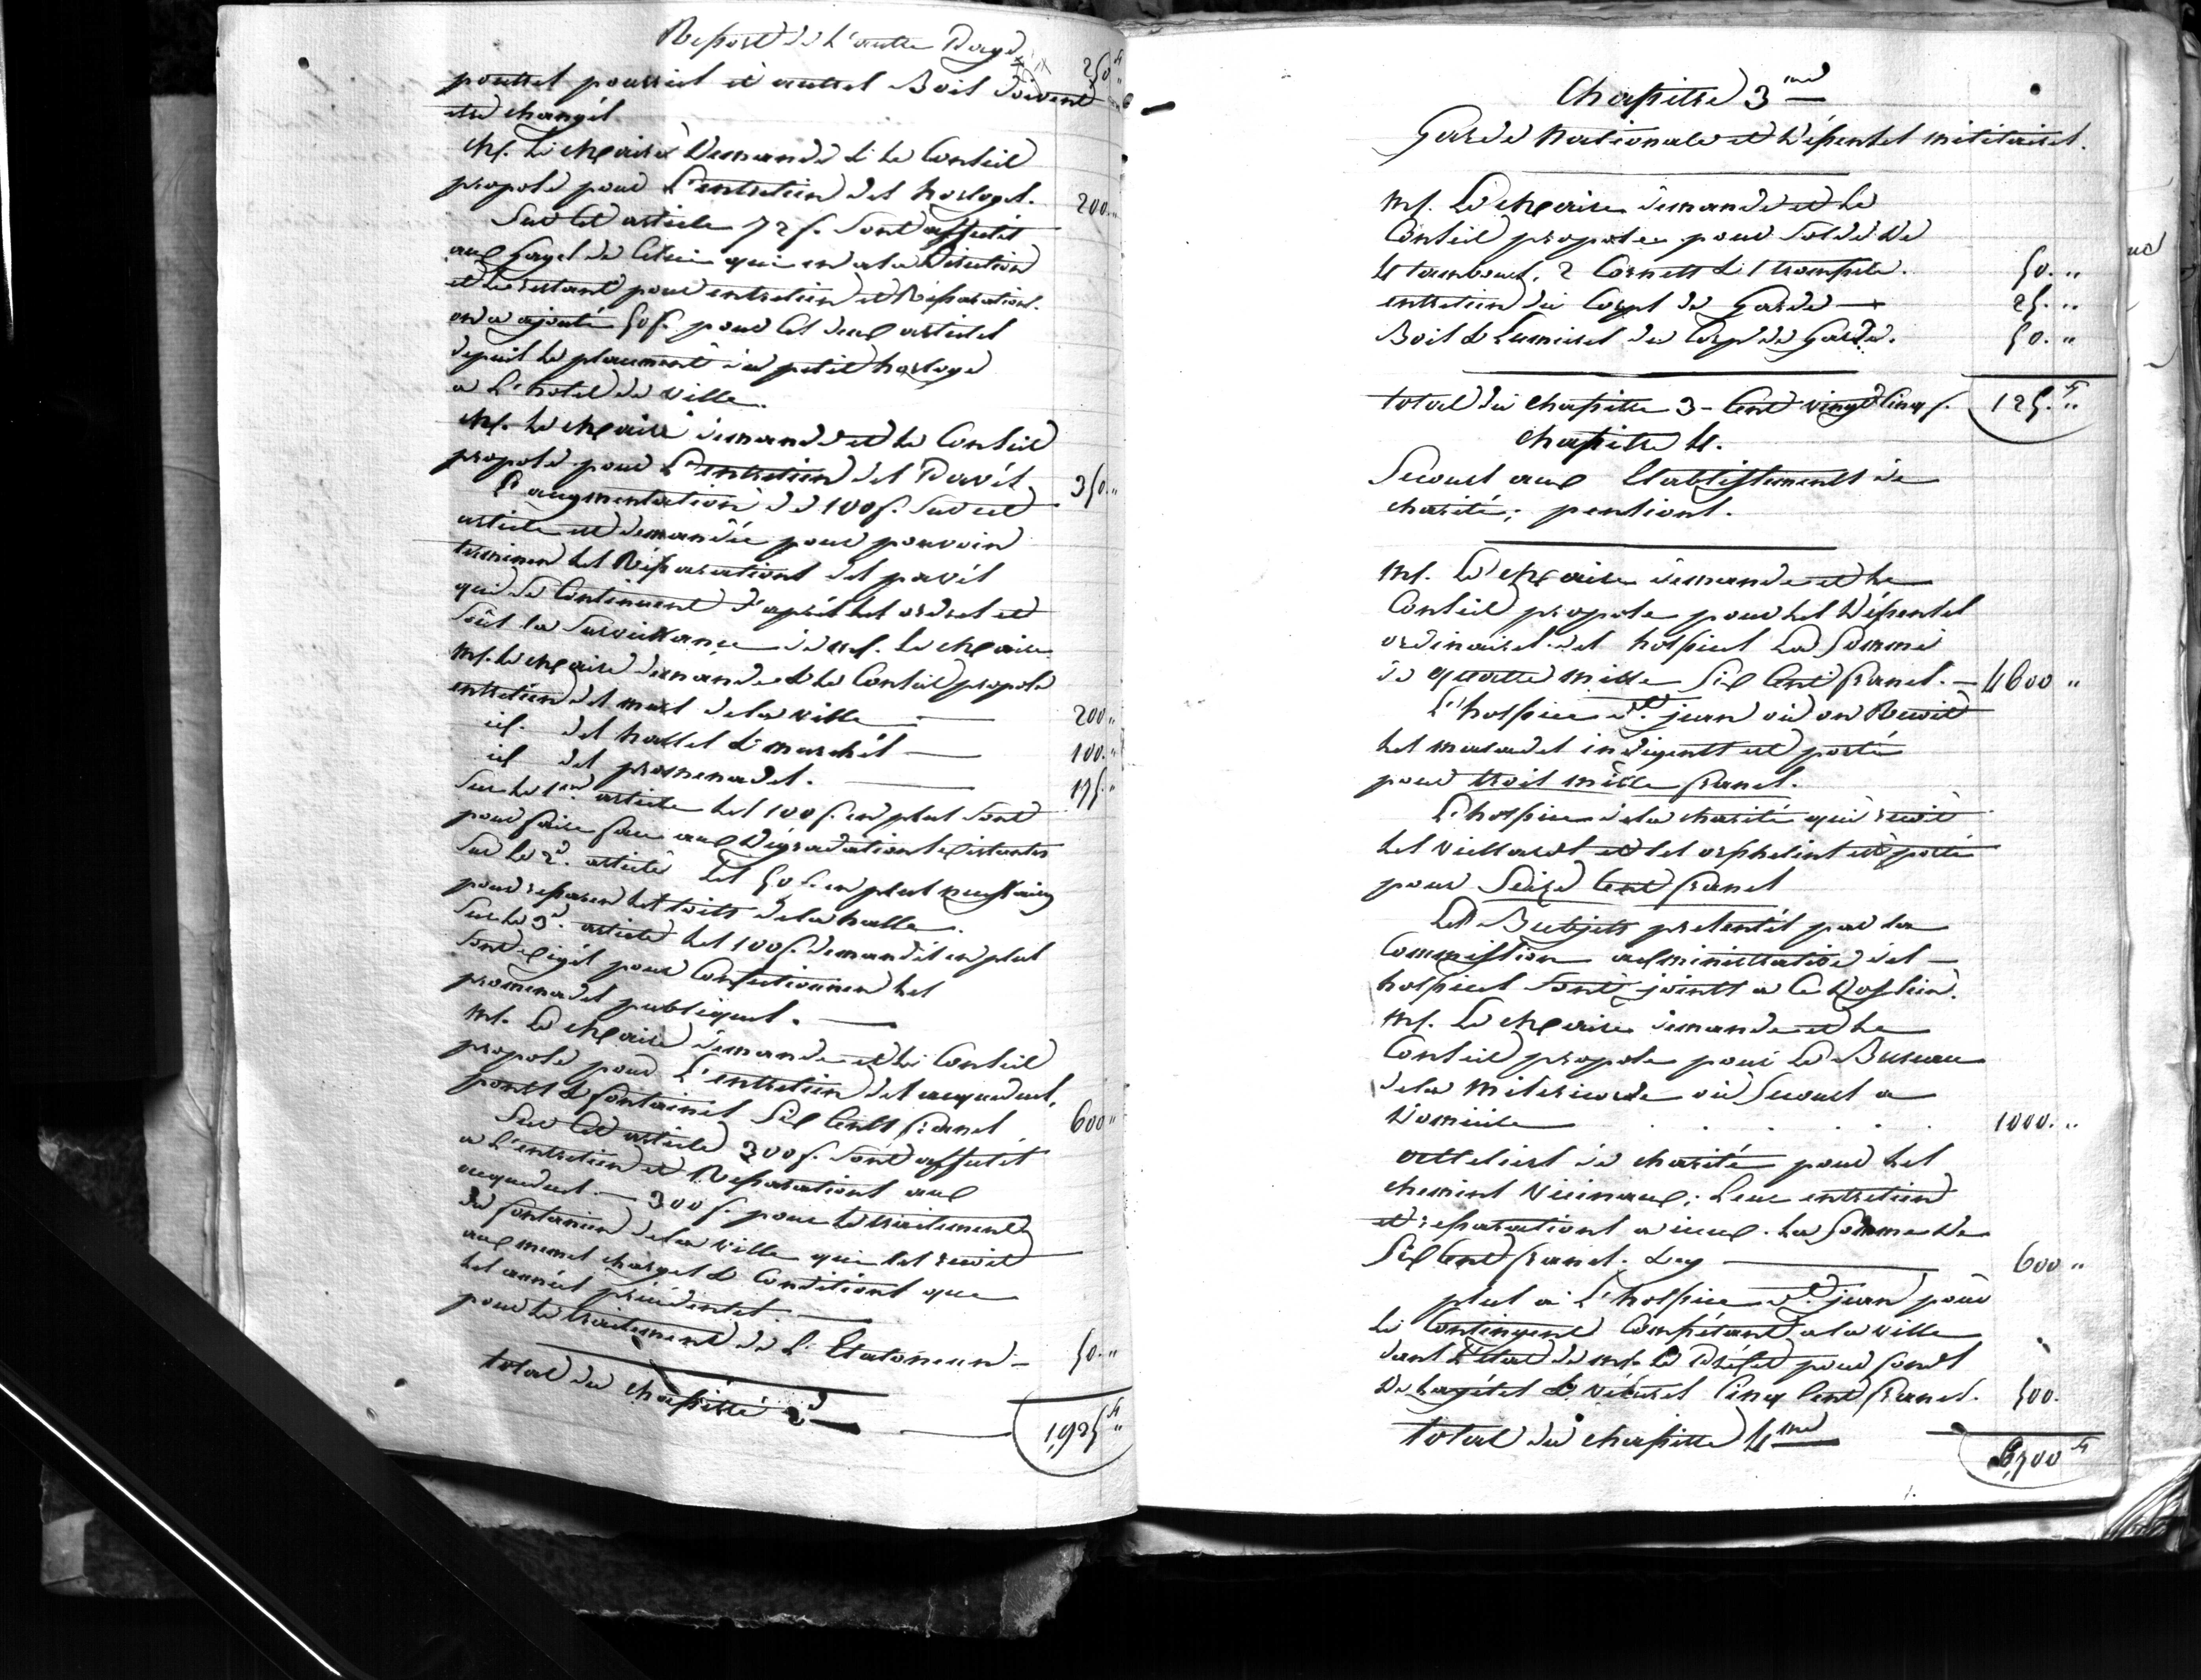 Report de L'autre Page 250 ''
pouttres pourries et autres Bois doivent
etre changés
Mr. Le Maire Demande & Le Conseil
propose pour L'entretien des horloges. 200. ''
Sur Cet article 72 f. Sont affectés
aux Gages de Celui qui en a la Direction
et le restant pour entretien et Réparations.
on a ajouté 50 f. pour Cet deux articles
depuis le placement du petit horloge
a L'hotel de Ville.
Mr. Le Maire demande et Le Conseil
propose pour L'entretien des Pavés 350. ''
L'augmentation de 100 f. Sur cet
article est demandée pour pouvoir
terminer les Réparations des pavés
qui se Continuent d'après les ordres et
Sous la Surveillance de Mr. Le Maire
Mr. Le Maire demande & Le Conseil propose
entretien des murs de la ville — 200 ''
id. des halles & marchés — 100. ''
id des promenades. — 175. ''
Sur Le 1er. article les 100 f. en plus Sont
pour faire face aux Dégradations existantes
Sur Le 2d. article les 50 f. en plus nécessaires
pour reparer les toits de la halle.
Sur Le 3e. article les 100 f. demandés en plus
Sont exigés pour Confectionner les
promenades publiques. —
Mr. Le Maire demande et Le Conseil
propose pour L'entretien des aqueducs,
ponts & fontaines Six Cents francs 600 ''
Sur Cet article 300 f. Sont affectés
a L'entretien et Reparations aux
aqueducs — 300 f. pour Le traitement
du fontanier de la ville qui les reçoit
aux memes charges & Conditions que
les années précédentes. —
pour Le traitement de L'Etaloneur — 50. ''
total du chapitre 2d — 1,925 ''
Chapitre 3me
Garde Nationale et Dépenses militaires.
Mr. Le Maire demande et Le
Conseil propose pour Solde de
4 tambours, 2 Cornets & 1 trompete. 50. ''
entretien du Corps de Garde — 25. ''
Bois & Lumieres du Corp de Garde. 50. ''
total du Chapitre 3 - Cent vingt Cinq f. 125. ''
Chapitre 4.
Secours aux Etablissements de
charité; pensions.
Mr. Le Maire demande et Le
Conseil propose pour les Dépenses
ordinaires des hospices La Somme
de quattre mille Six Cent francs. — 4600 ''
L'hospice St. jean où on Reçoit
les malades indigents est porté
pour trois mille francs.
L'hospice de la charité qui reçoit
les vieillards et les orphelins est porté
pour Seize Cent francs
Les Budjets presentés par la
Commission administrative des
hospices Sont joints a Ce Dossier.
Mr. Le Maire demande et Le
Conseil propose pour Le Bureau
de la Misericorde où Secours a
Domicile . . . . 1000. ''
atteliers de charité pour les
chemins Vicinaux; Leur entretien
et reparations a iceux. La Somme de
Six Cent francs. Cy — 600 ''
plus à L'hospice St. jean pour
Le Contingent Compétant a la ville
dans L'état de Mr. Le Préfet pour fonds
De Cinq Cent francs. 500.
total du chapitre 4me 6,700